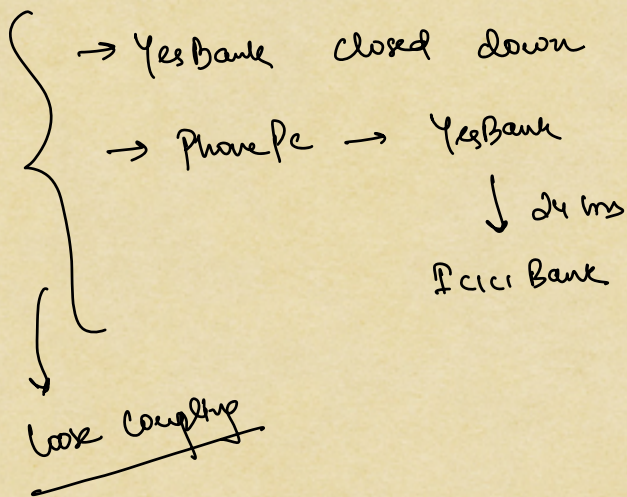 → YesBank closed down
→ PhonePe → YesBank
↓ 24 hrs
Icici Bank
Loose Coupling